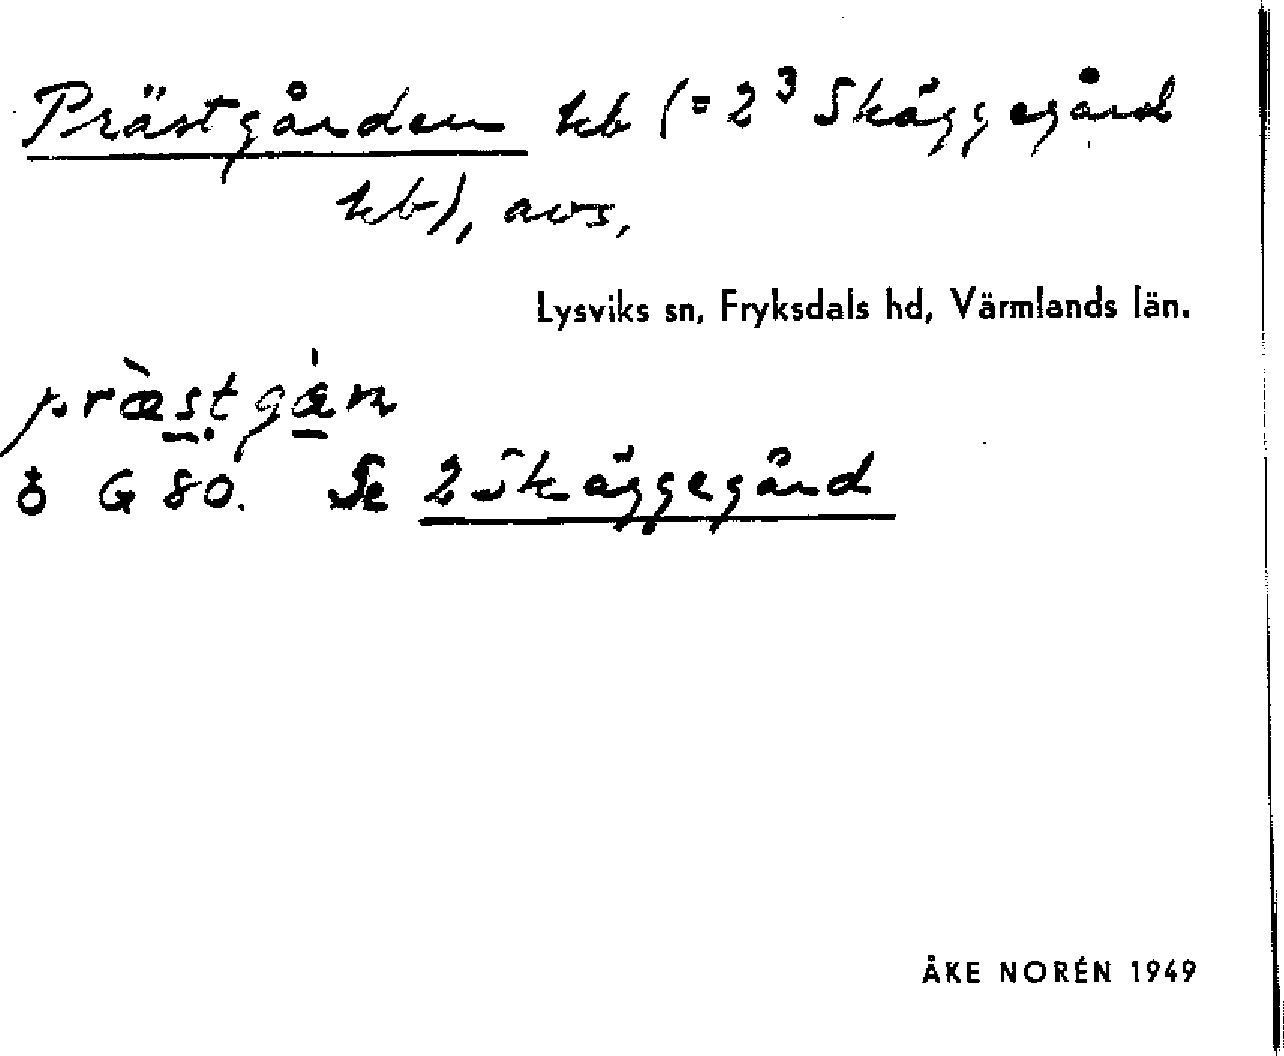 Prästgården kb (= 2³ Skäggegård
kb), avs,
Lysviks sn, Fryksdals hd, Värmlands län.
præ̀stgán
ö G 80. Se 2 Skäggegård
ÅKE NORÉN 1949